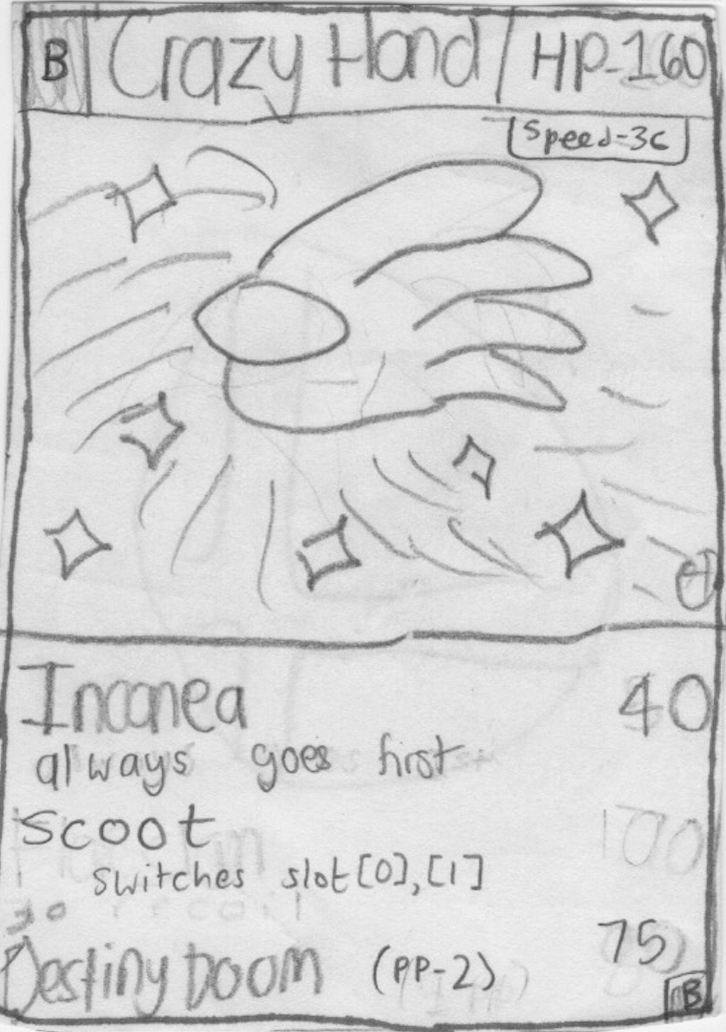 B Crazy Hand HP-160
Speed-36
Inconea 40
always goes first
Scoot
switches slot[0],[1]
30 recoil
Destiny Doom (PP-2) 75
B